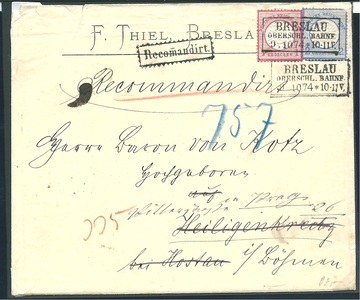 F. Thiel, Breslau
Recomandirt.
BRESLAU
OBERSCHL. BAHNF.
9. 1074 * 10-11V.
BRESLAU
OBERSCHL. BAHNF.
1074 * 10-11V.
Recommandirt
757
Herrn Baron von Kotz
Hochgeboren
auf
in Prag
26
225
Heiligenkreuz
bei Hostau i/Böhmen